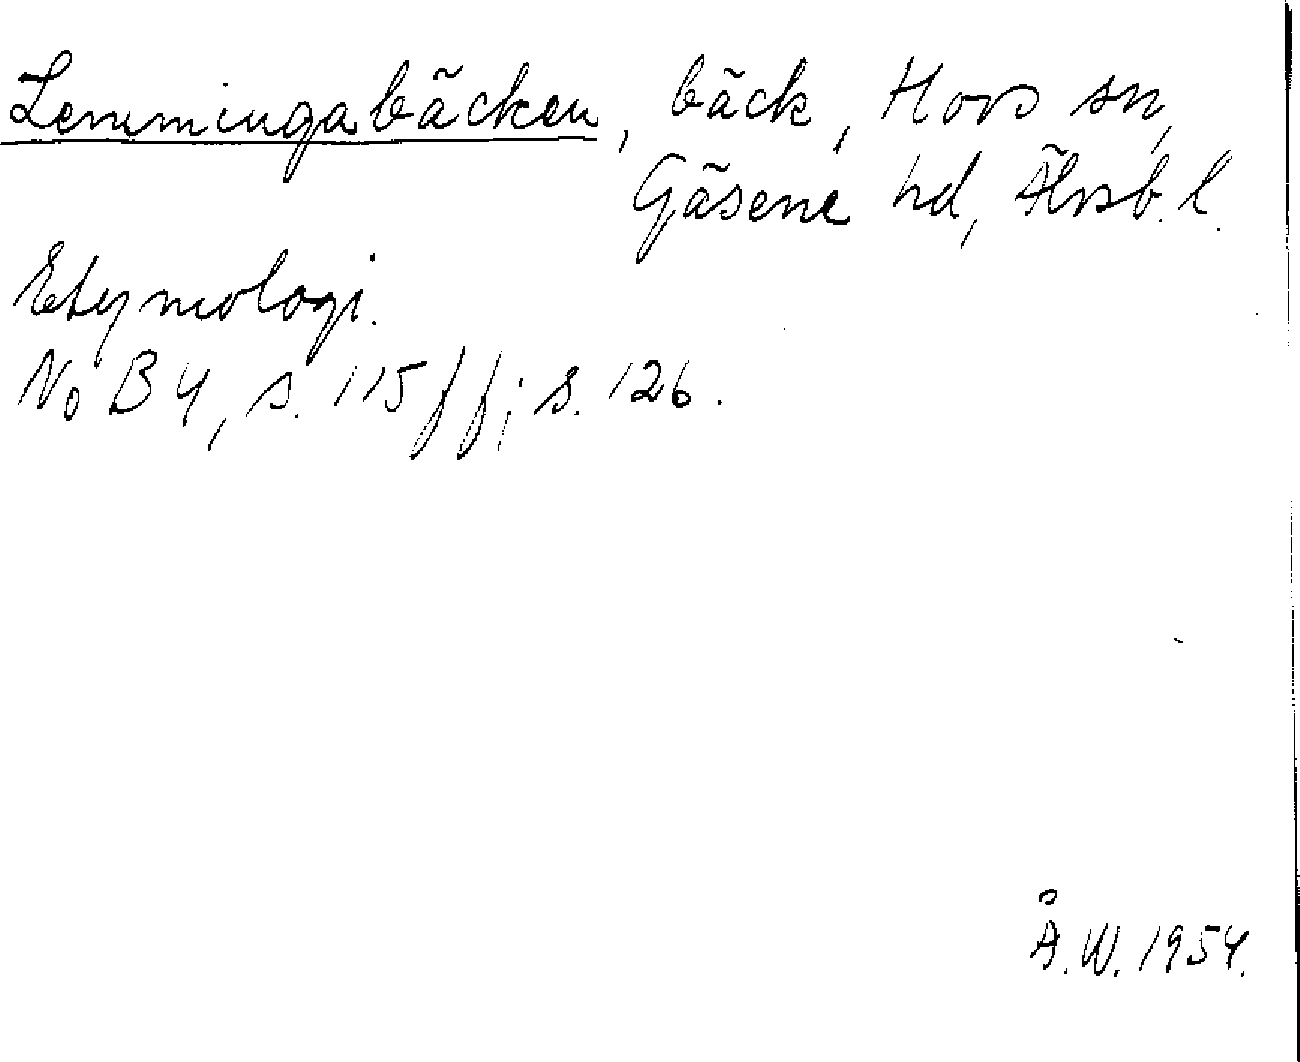 Lemmingabäcken, bäck, Hovs sn,
Gäsene hd, Älvsb. l.
Etymologi.
NoB 4, s. 115 ff; s. 126.
Å.W. 1954.